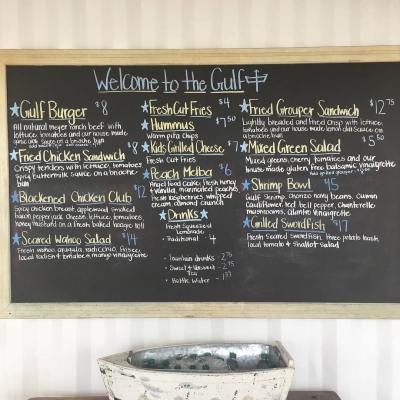 Welcome to the Gulf
Gulf Burger $8
All natural meyer ranch beef with
lettuce, tomatoes and our house made
spic sauce serve on a brioche bun
Fried Chicken Sandwich $8
Crispy tenders with lettuce, tomatoes
Spicy buttermilk sauce on a brioche
bun
Blackened Chicken Club $12
Spicy chicken breast, applewood smoked
bacon, pepper jack cheese, lettuce, tomatoes,
honey mustard on a fresh baked hoagie roll
Seared Wahoo Salad $14
Fresh wahoo, arugula, radicchio, frisee,
local radish & tomatoes, mango vinaigrette
Fresh Cut Fries $4
Hummus $7.50
Warm pita chips
Kids Grilled Cheese $7
Fresh Cut Fries
Peach Melba $6
Angel food cake, fresh honey
vanilla marinated peaches
fresh raspberries whipped
cream, almond crunch
Drinks
Fresh Squeezed
Lemonade
- Traditional - 4
- Fountain drinks - 2.75
- Sweet & Unsweet - 2.75
Tea
- Bottle Water -
Fried Grouper Sandwich $12.75
Lightly breaded and fried crisp with lettuce,
tomatoes and our house made lemon dill sauce on
a brioche bun
Mixed Green Salad $5.50
Mixed greens, cherry tomatoes and our
house made gluten free balsamic vinaigrette
Add grilled grouper
Shrimp Bowl $15
Gulf Shrimp, chorizo navy beans, cumin
Cauliflower, red bell pepper, chanterelle
mushrooms, cilantro Vinaigrette
Grilled Swordfish $17
Fresh Seared Swordfish, three potato hash,
local tomato & shallot salad